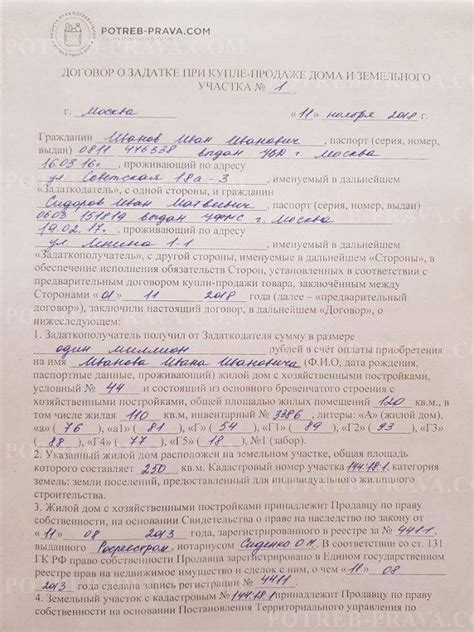 POTREB-PRAVA.COM
ДОГОВОР О ЗАДАТКЕ ПРИ КУПЛЕ-ПРОДАЖЕ ДОМА И ЗЕМЕЛЬНОГО
УЧАСТКА № 1
г. Москва «11» ноября 2018 г.
Гражданин Иванов Иван Иванович, паспорт (серия, номер,
выдан) 0811 476338 выдан УВД г. Москва
16.03.16г., проживающий по адресу
ул. Советская 18а-3, именуемый в дальнейшем
«Задаткодатель», с одной стороны, и гражданин
Сидоров Иван Матвеевич, паспорт (серия, номер, выдан)
0603 151819 выдан УФМС г. Москва
19.02.17., проживающий по адресу
ул. Ленина 1-1, именуемый в дальнейшем
«Задаткополучатель», с другой стороны, именуемые в дальнейшем «Стороны», в
обеспечение исполнения обязательств Сторон, установленных в соответствии с
предварительным договором купли-продажи товара, заключённым между
Сторонами «01» 11 2018 года (далее – «предварительный
договор»), заключили настоящий договор, в дальнейшем «Договор», о
нижеследующем:
1. Задаткополучатель получил от Задаткодателя сумму в размере
один миллион рублей в счёт оплаты приобретения
на имя Иванова Ивана Ивановича (Ф.И.О, дата рождения,
паспортные данные, проживающий) жилой дом с хозяйственными постройками,
условный № 44 и состоящий из основного бревенчатого строения с
хозяйственными постройками, общей площадью жилых помещений 120 кв.м., в
том числе жилая 110 кв.м, инвентарный № 3386, литеры: «А» (жилой дом),
«а» (76), «а1» (81), «Г» (54), «Г1» (89), «Г2» (93), «Г3»
(88), «Г4» (77), «Г5» (18), №1 (забор).
2. Указанный жилой дом расположен на земельном участке, общая площадь
которого составляет 250 кв.м. Кадастровый номер участка 144.18.1 категория
земель: земли поселений, предоставленный для индивидуального жилищного
строительства.
3. Жилой дом с хозяйственными постройками принадлежит Продавцу по праву
собственности, на основании Свидетельства о праве на наследство по закону от
«11» 08 2013 года, зарегистрированного в реестре за № 4481,
выданного Росреестром, нотариусом Сиденко О.М. В соответствии со ст. 131
ГК РФ право собственности Продавца зарегистрировано в Едином государственном
реестре прав на недвижимое имущество и сделок с ним, о чем «11» 08
2013 года сделана запись регистрации № 4411.
4. Земельный участок с кадастровым №144.18.1 принадлежит Продавцу по праву
собственности на основании Постановления Территориального управления по
POTREB-PRAVA.COM